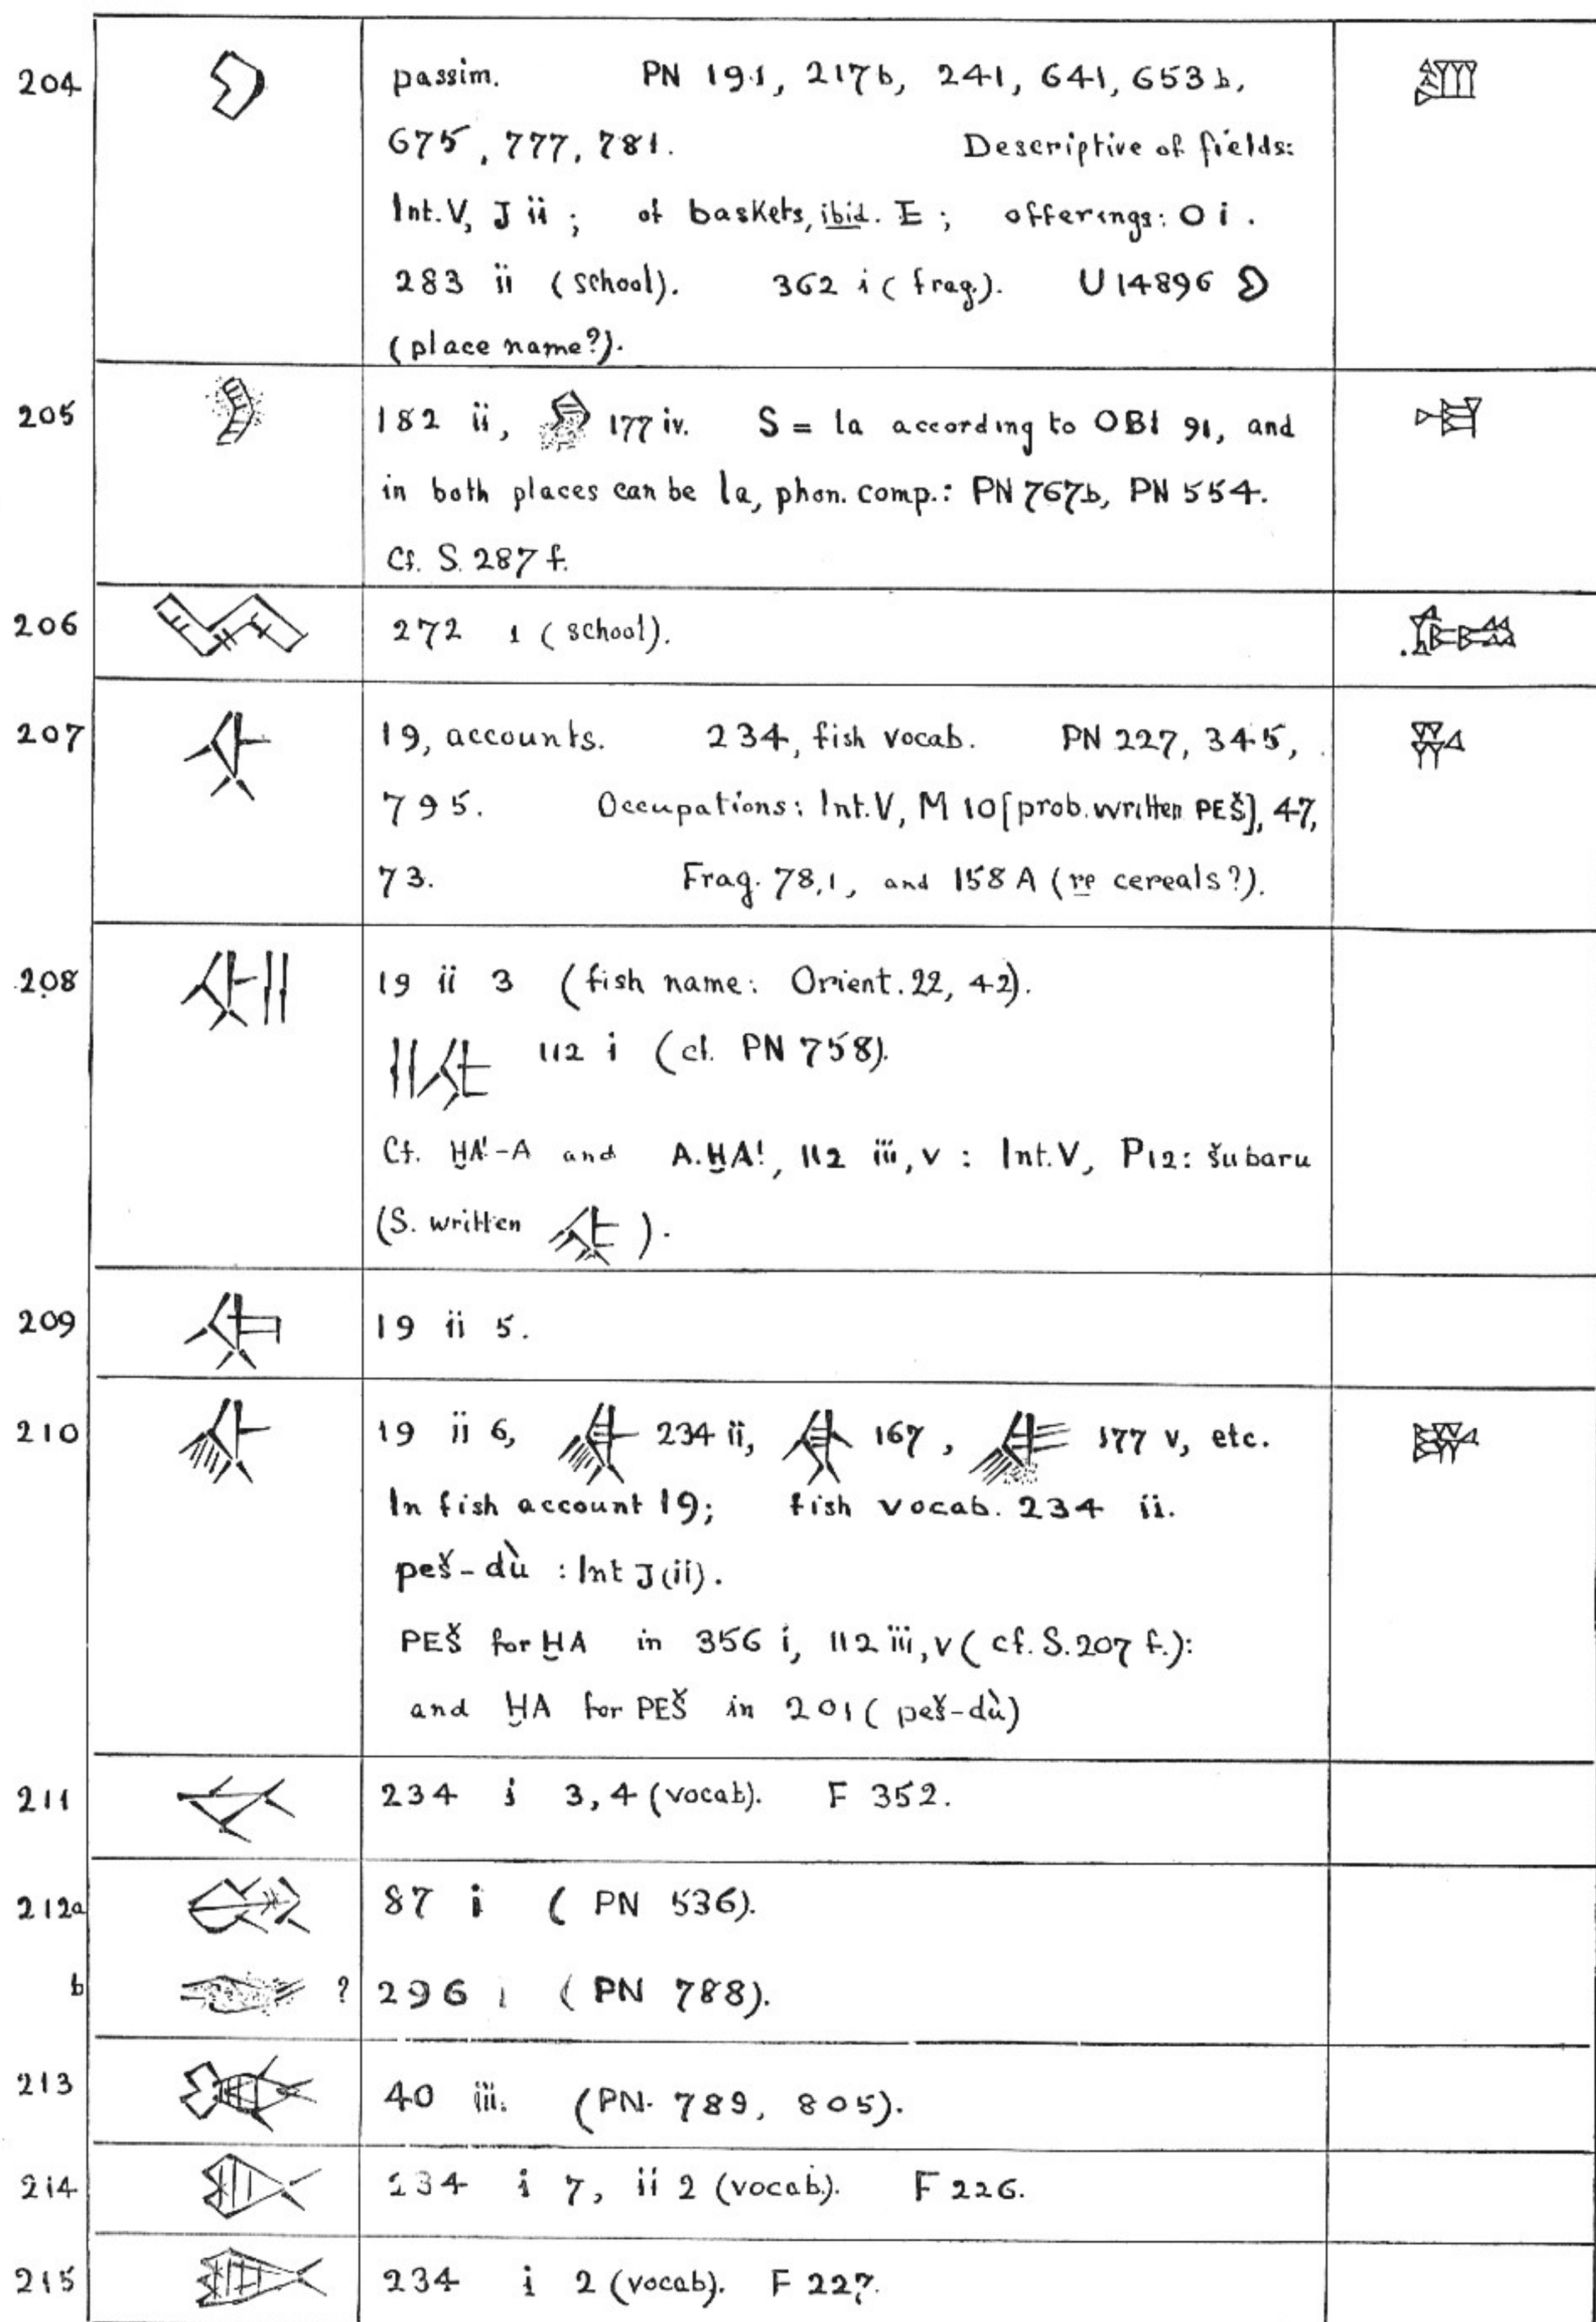 204 passim. PN 191, 217b, 241, 641, 653b,
675, 777, 781. Descriptive of fields:
Int. V, J ii; of baskets, ibid. E; offerings: O i.
283 ii (school). 362 i (frag.). U 14896
(place name?).
205 182 ii, 177 iv. S = la according to OBI 91, and
in both places can be la, phon. comp.: PN 767b, PN 554.
Cf. S. 287 f.
206 272 1 (school).
207 19, accounts. 234, fish vocab. PN 227, 345,
795. Occupations: Int. V, M 10 [prob. written PEŠ], 47,
73. Frag. 78,1, and 158 A (re cereals?).
208 19 ii 3 (fish name: Orient. 22, 42).
112 i (cf. PN 758).
Cf. ḪA!-A and A.ḪA!, 112 iii, v : Int. V, P12: šubaru
(S. written ).
209 19 ii 5.
210 19 ii 6, 234 ii, 167, 177 v, etc.
In fish account 19; fish vocab. 234 ii.
peš-dù : Int J (ii).
PEŠ for ḪA in 356 i, 112 iii, v (cf. S. 207 f.):
and ḪA for PEŠ in 201 (peš-dù)
211 234 i 3, 4 (vocab). F 352.
212a 87 i (PN 536).
b ? 296 i (PN 788).
213 40 iii. (PN. 789, 805).
214 234 i 7, ii 2 (vocab.). F 226.
215 234 i 2 (vocab). F 227.